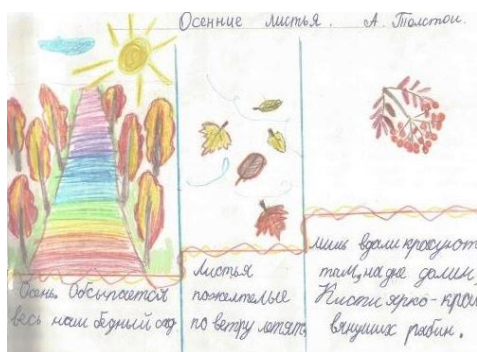 Осенние листья. А. Толстой.
Осень. Обсыпается
весь наш бедный сад.
Листья
пожелтелые
по ветру летят,
лишь вдали красуют
там, на дне долин,
Кисти ярко-крас
вянущих рябин.